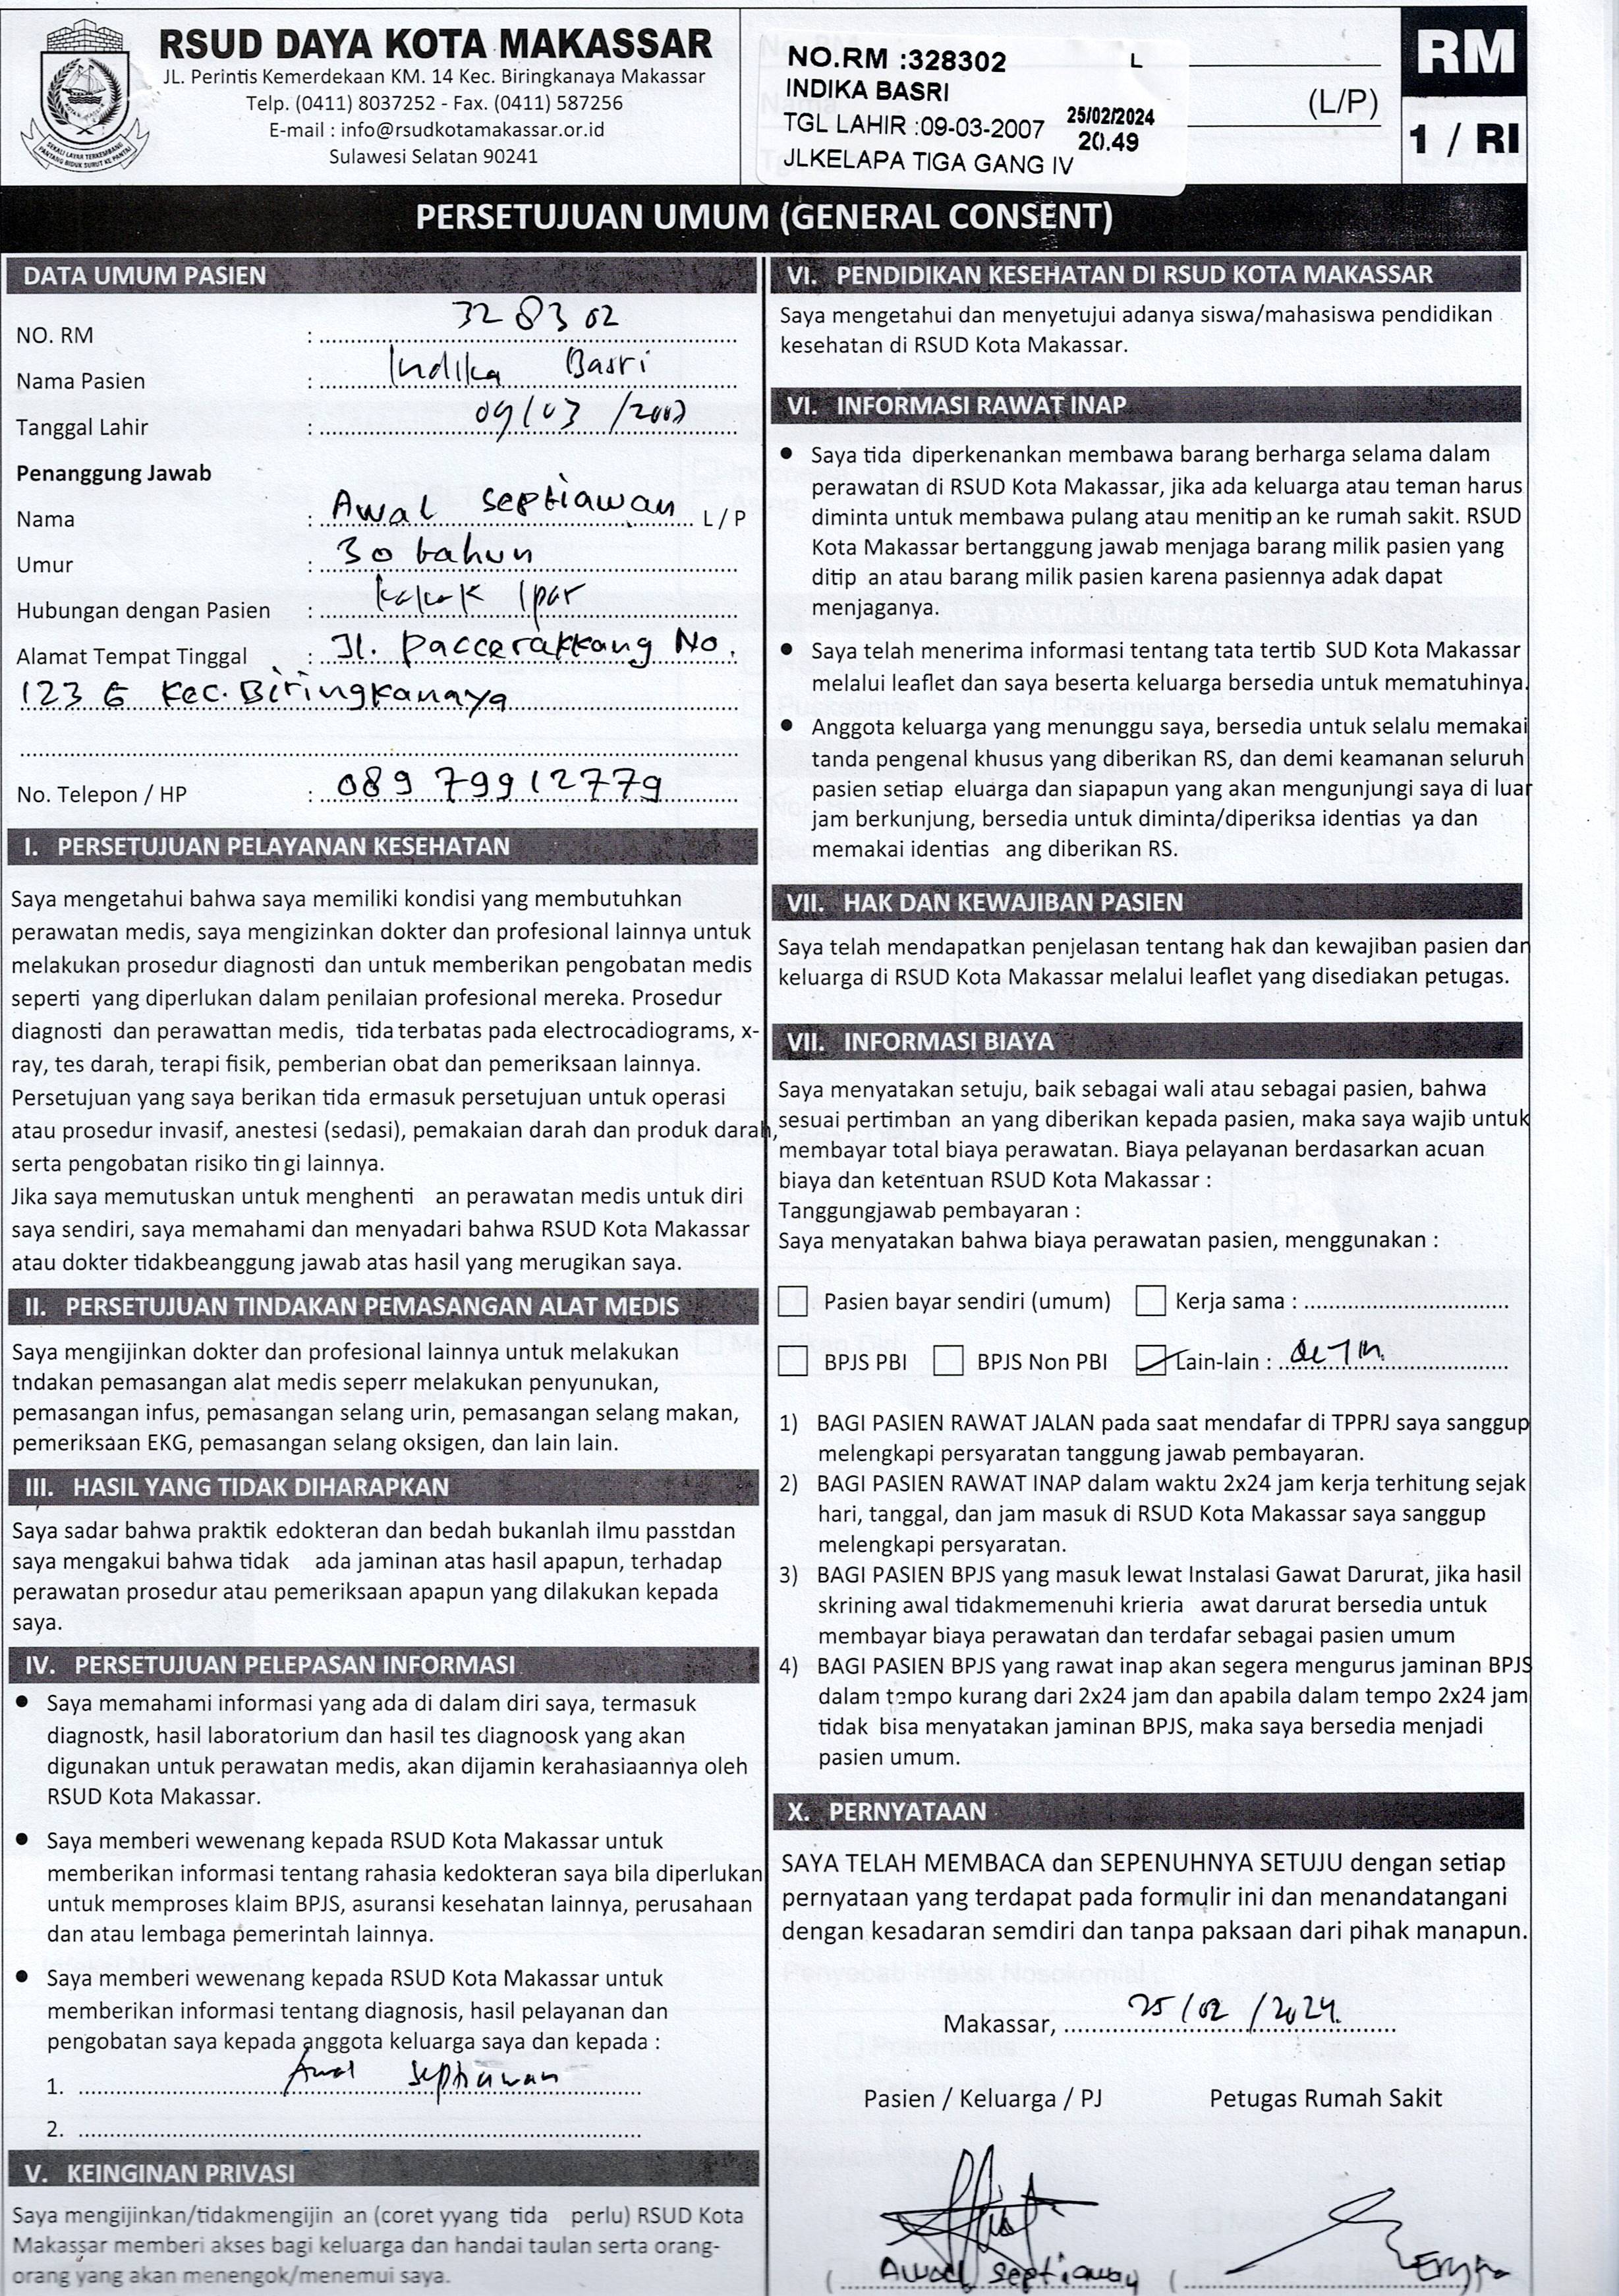 RSUD DAYA KOTA MAKASSAR
JL. Perintis Kemerdekaan KM. 14 Kec. Biringkanaya Makassar
Telp. (0411) 8037252 - Fax. (0411) 587256
E-mail : info@rsudkotamakassar.or.id
Sulawesi Selatan 90241
NO.RM :328302 L
INDIKA BASRI
TGL LAHIR :09-03-2007 25/02/2024
20.49
JLKELAPA TIGA GANG IV
(L/P)
RM
1 / RI
PERSETUJUAN UMUM (GENERAL CONSENT)
DATA UMUM PASIEN
NO. RM : 328302
Nama Pasien : Indika Basri
Tanggal Lahir : 09/03/2007
Penanggung Jawab
Nama : Awal septiawan L / P
Umur : 30 tahun
Hubungan dengan Pasien : kakak Ipar
Alamat Tempat Tinggal : Jl. paccerakkang No.
123 E Kec. Biringkanaya
No. Telepon / HP : 08979912779
I. PERSETUJUAN PELAYANAN KESEHATAN
Saya mengetahui bahwa saya memiliki kondisi yang membutuhkan
perawatan medis, saya mengizinkan dokter dan profesional lainnya untuk
melakukan prosedur diagnosti dan untuk memberikan pengobatan medis
seperti yang diperlukan dalam penilaian profesional mereka. Prosedur
diagnosti dan perawattan medis, tida terbatas pada electrocadiograms, x-
ray, tes darah, terapi fisik, pemberian obat dan pemeriksaan lainnya.
Persetujuan yang saya berikan tida ermasuk persetujuan untuk operasi
atau prosedur invasif, anestesi (sedasi), pemakaian darah dan produk darah,
serta pengobatan risiko tin gi lainnya.
Jika saya memutuskan untuk menghenti an perawatan medis untuk diri
saya sendiri, saya memahami dan menyadari bahwa RSUD Kota Makassar
atau dokter tidakbeanggung jawab atas hasil yang merugikan saya.
II. PERSETUJUAN TINDAKAN PEMASANGAN ALAT MEDIS
Saya mengijinkan dokter dan profesional lainnya untuk melakukan
tndakan pemasangan alat medis seperr melakukan penyunukan,
pemasangan infus, pemasangan selang urin, pemasangan selang makan,
pemeriksaan EKG, pemasangan selang oksigen, dan lain lain.
III. HASIL YANG TIDAK DIHARAPKAN
Saya sadar bahwa praktik edokteran dan bedah bukanlah ilmu passtdan
saya mengakui bahwa tidak ada jaminan atas hasil apapun, terhadap
perawatan prosedur atau pemeriksaan apapun yang dilakukan kepada
saya.
IV. PERSETUJUAN PELEPASAN INFORMASI
● Saya memahami informasi yang ada di dalam diri saya, termasuk
diagnostk, hasil laboratorium dan hasil tes diagnoosk yang akan
digunakan untuk perawatan medis, akan dijamin kerahasiaannya oleh
RSUD Kota Makassar.
● Saya memberi wewenang kepada RSUD Kota Makassar untuk
memberikan informasi tentang rahasia kedokteran saya bila diperlukan
untuk memproses klaim BPJS, asuransi kesehatan lainnya, perusahaan
dan atau lembaga pemerintah lainnya.
● Saya memberi wewenang kepada RSUD Kota Makassar untuk
memberikan informasi tentang diagnosis, hasil pelayanan dan
pengobatan saya kepada anggota keluarga saya dan kepada :
1. Awal septiawan
2.
V. KEINGINAN PRIVASI
Saya mengijinkan/tidakmengijin an (coret yyang tida perlu) RSUD Kota
Makassar memberi akses bagi keluarga dan handai taulan serta orang-
orang yang akan menengok/menemui saya.
VI. PENDIDIKAN KESEHATAN DI RSUD KOTA MAKASSAR
Saya mengetahui dan menyetujui adanya siswa/mahasiswa pendidikan
kesehatan di RSUD Kota Makassar.
VI. INFORMASI RAWAT INAP
● Saya tida diperkenankan membawa barang berharga selama dalam
perawatan di RSUD Kota Makassar, jika ada keluarga atau teman harus
diminta untuk membawa pulang atau menitip an ke rumah sakit. RSUD
Kota Makassar bertanggung jawab menjaga barang milik pasien yang
ditip an atau barang milik pasien karena pasiennya adak dapat
menjaganya.
● Saya telah menerima informasi tentang tata tertib SUD Kota Makassar
melalui leaflet dan saya beserta keluarga bersedia untuk mematuhinya.
● Anggota keluarga yang menunggu saya, bersedia untuk selalu memakai
tanda pengenal khusus yang diberikan RS, dan demi keamanan seluruh
pasien setiap eluarga dan siapapun yang akan mengunjungi saya di luar
jam berkunjung, bersedia untuk diminta/diperiksa identias ya dan
memakai identias ang diberikan RS.
VII. HAK DAN KEWAJIBAN PASIEN
Saya telah mendapatkan penjelasan tentang hak dan kewajiban pasien dan
keluarga di RSUD Kota Makassar melalui leaflet yang disediakan petugas.
VII. INFORMASI BIAYA
Saya menyatakan setuju, baik sebagai wali atau sebagai pasien, bahwa
sesuai pertimban an yang diberikan kepada pasien, maka saya wajib untuk
membayar total biaya perawatan. Biaya pelayanan berdasarkan acuan
biaya dan ketentuan RSUD Kota Makassar :
Tanggungjawab pembayaran :
Saya menyatakan bahwa biaya perawatan pasien, menggunakan :
Pasien bayar sendiri (umum) Kerja sama :
BPJS PBI BPJS Non PBI Lain-lain :
1) BAGI PASIEN RAWAT JALAN pada saat mendafar di TPPRJ saya sanggup
melengkapi persyaratan tanggung jawab pembayaran.
2) BAGI PASIEN RAWAT INAP dalam waktu 2x24 jam kerja terhitung sejak
hari, tanggal, dan jam masuk di RSUD Kota Makassar saya sanggup
melengkapi persyaratan.
3) BAGI PASIEN BPJS yang masuk lewat Instalasi Gawat Darurat, jika hasil
skrining awal tidakmemenuhi krieria awat darurat bersedia untuk
membayar biaya perawatan dan terdafar sebagai pasien umum
4) BAGI PASIEN BPJS yang rawat inap akan segera mengurus jaminan BPJS
dalam tempo kurang dari 2x24 jam dan apabila dalam tempo 2x24 jam
tidak bisa menyatakan jaminan BPJS, maka saya bersedia menjadi
pasien umum.
X. PERNYATAAN
SAYA TELAH MEMBACA dan SEPENUHNYA SETUJU dengan setiap
pernyataan yang terdapat pada formulir ini dan menandatangani
dengan kesadaran semdiri dan tanpa paksaan dari pihak manapun.
Makassar, 25/02/2024.
Pasien / Keluarga / PJ Petugas Rumah Sakit
( Awal septiawan (